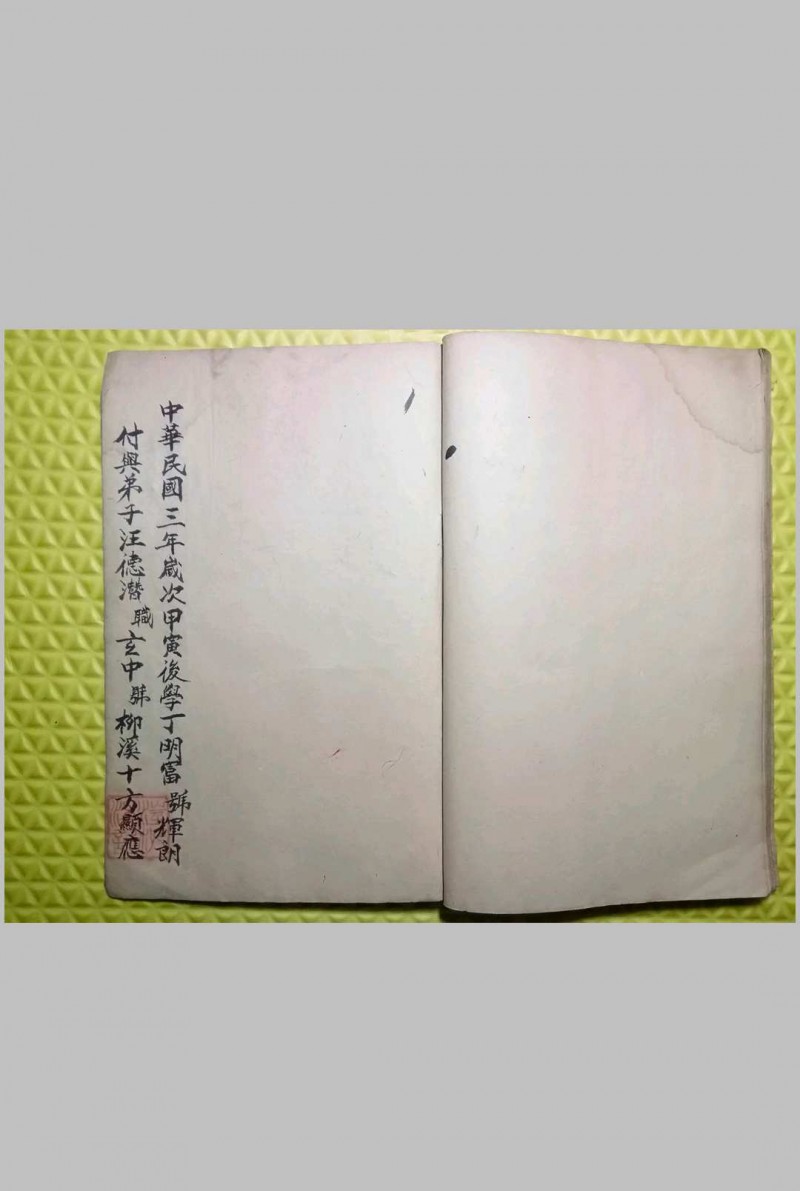 中華民國三年歲次甲寅後學丁明富號輝朗
付與弟子汪德潛職玄中號柳溪十方顯應